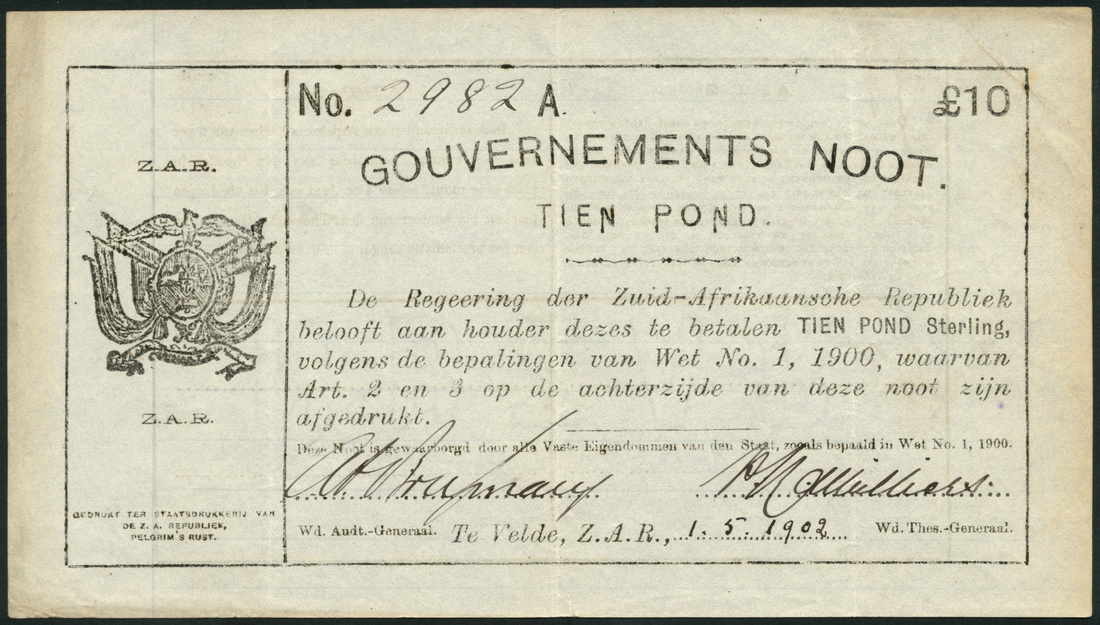 No. 2982 A.
£10
GOUVERNEMENTS NOOT.
TIEN POND.
De Regeering der Zuid-Afrikaansche Republiek
belooft aan houder dezes te betalen TIEN POND Sterling,
volgens de bepalingen van Wet No. 1, 1900, waarvan
Art. 2 en 3 op de achterzijde van deze noot zijn
afgedrukt.
Deze Noot is gewaarborgd door alle Vaste Eigendommen van den Staat, zooals bepaald in Wet No. 1, 1900.
Wd. Audt.-Generaal. Te Velde, Z.A.R., 1. 5. 1902 Wd. Thes.-Generaal.
Z.A.R.
Z.A.R.
GEDRUKT TER STAATSDRUKKERIJ VAN
DE Z. A. REPUBLIEK,
PELGRIM'S RUST.